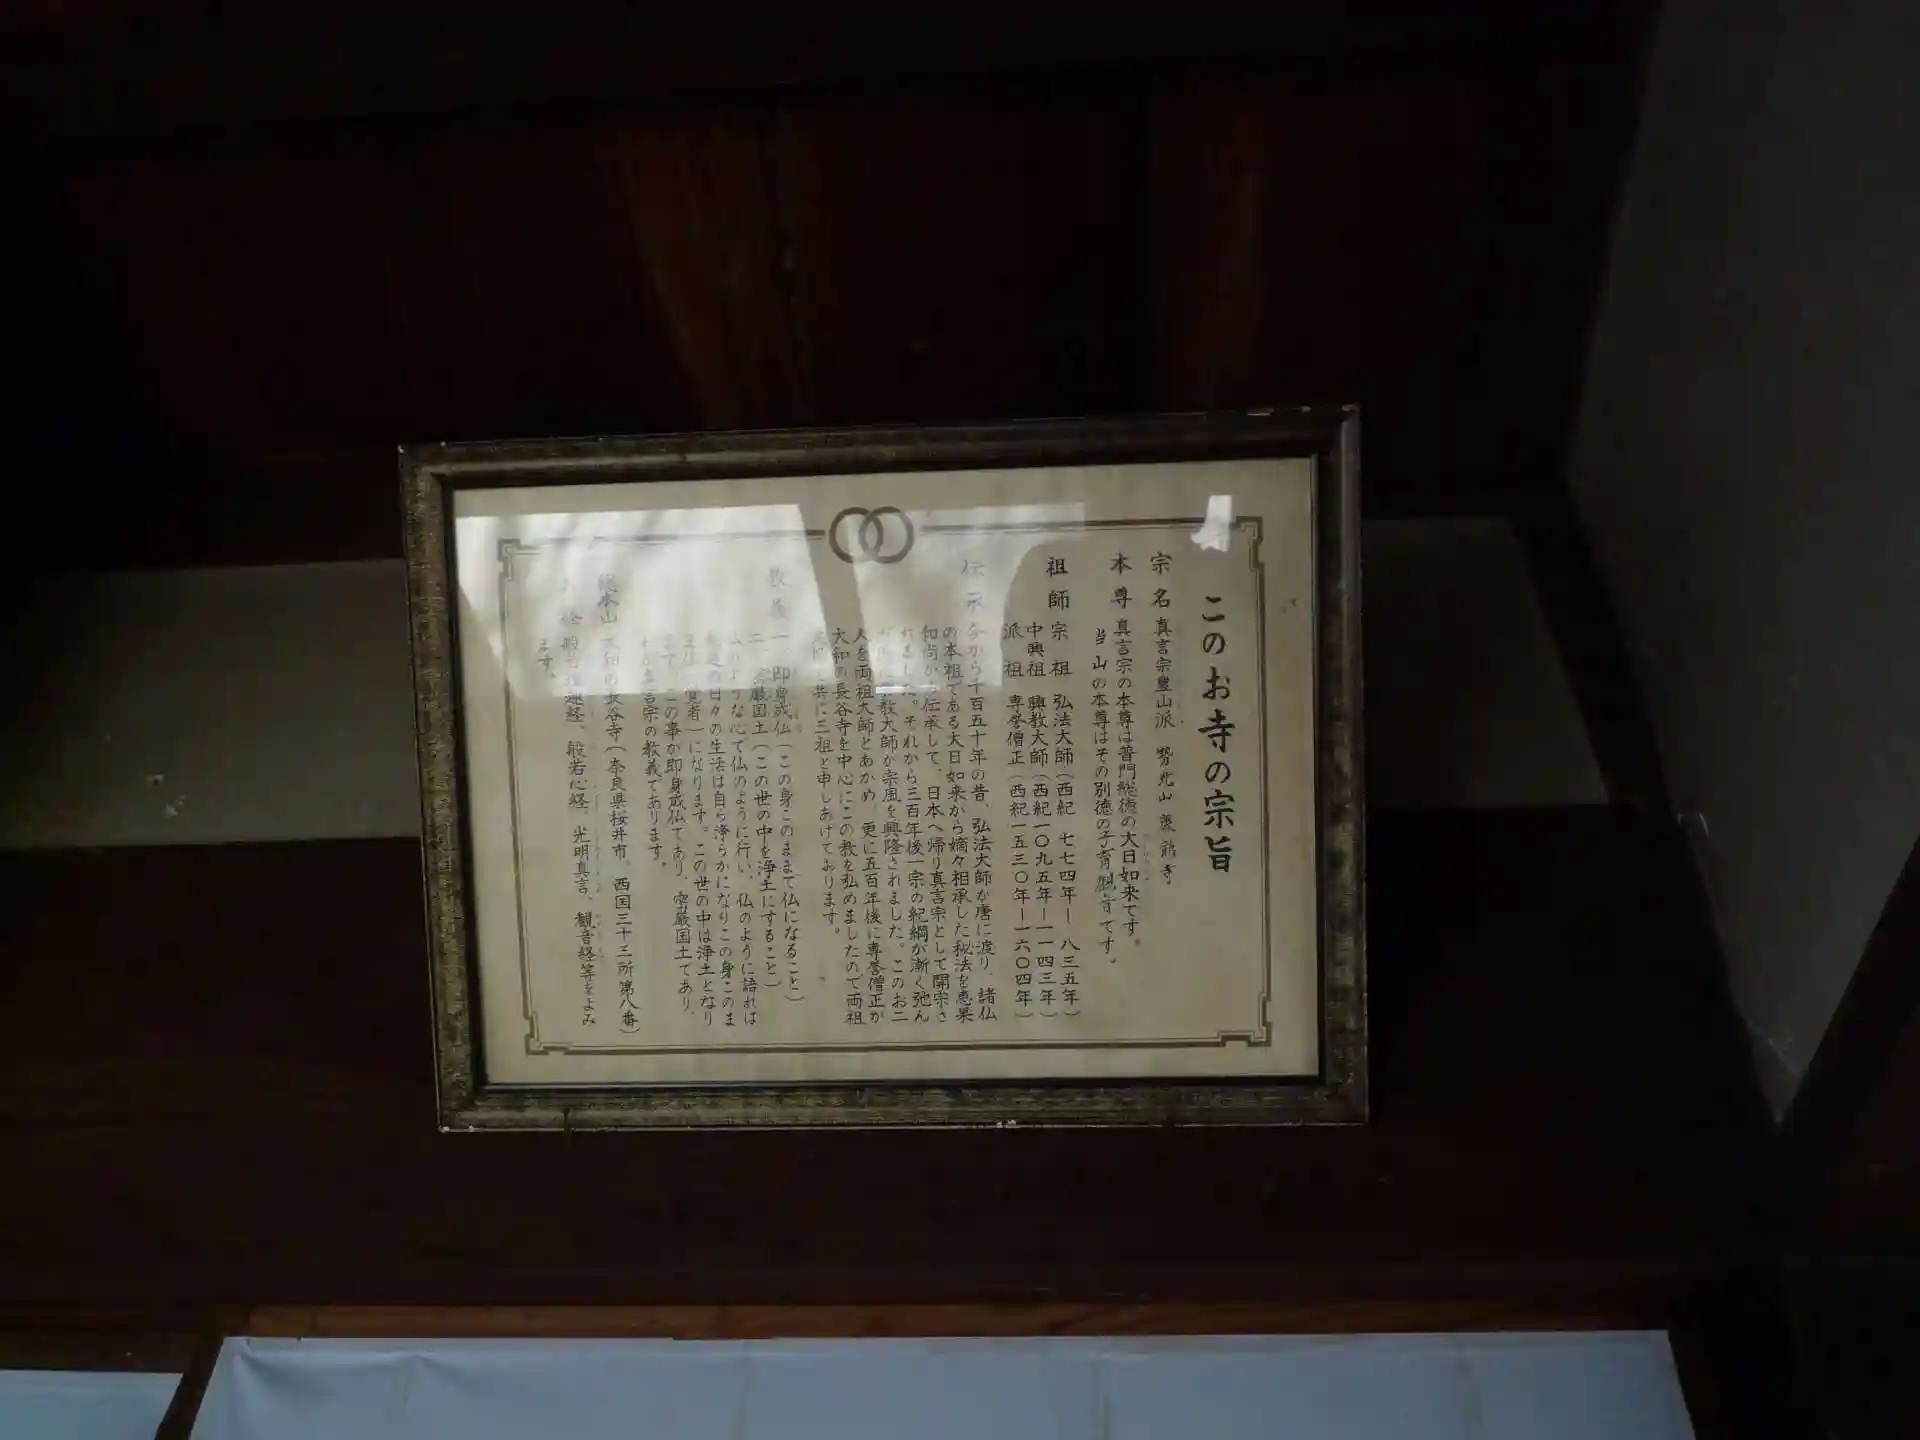 このお寺の宗旨
宗名 真言宗豊山派
本尊 真言宗の本尊は普門総徳の大日如来です。
当山の本尊はその別徳の子育観音です。
祖師 宗祖 弘法大師(西紀 七七四年ー八三五年)
中興祖 興教大師(西紀一〇九五年ー一一四三年)
派祖 専誉僧正(西紀一五三〇年ー一六〇四年)
伝承 今から千百五十年の昔、弘法大師が唐に渡り、諸仏
の本祖である大日如来から嫡々相承した秘法を恵果
和尚から伝承して、日本へ帰り真言宗として開宗さ
れました。それから三百年後一宗の紀綱が漸く弛ん
教大師が宗風を興隆されました。このお二
人を両祖大師とあかめ、更に五百年後に専誉僧正が
大和の長谷寺を中心にこの教を弘めましたので両祖
と共に三祖と申しあげております。
教義 一、即身成仏(この身このままで仏になること)
二、密厳国土(この世の中を浄土にすること)
のような心で仏のように行い、仏のように語れば
の日々の生活は自ら浄らかになりこの身このま
になります。この世の中は浄土となり
この事が即身成仏であり、密厳国土であり、
真言宗の教義であります。
総本山 大和の長谷寺(奈良県桜井市、西国三十三所第八番)
般若理趣経、般若心経、光明真言、観音経等をよみ
ます。